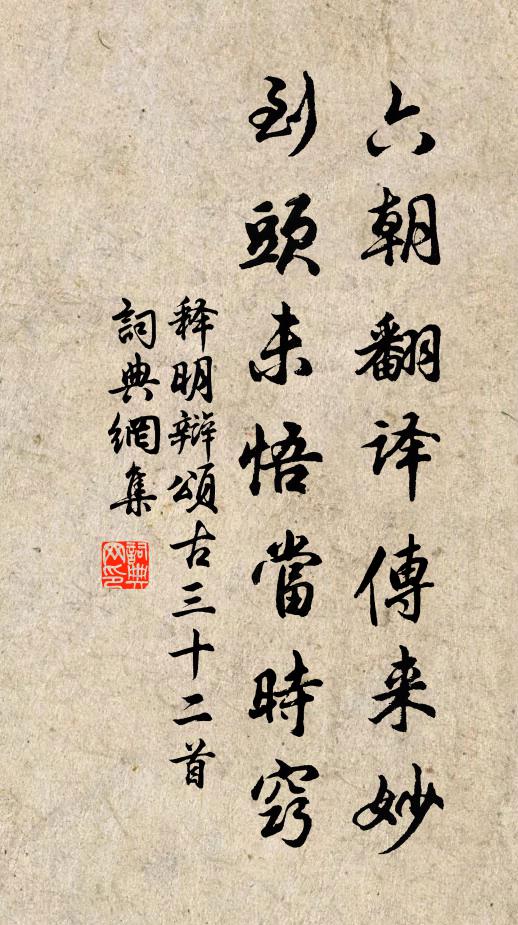 六朝翻译傳来妙
到頭未悟當時窍
释明辩頌古三十二首
詞典網集
詞典
网印